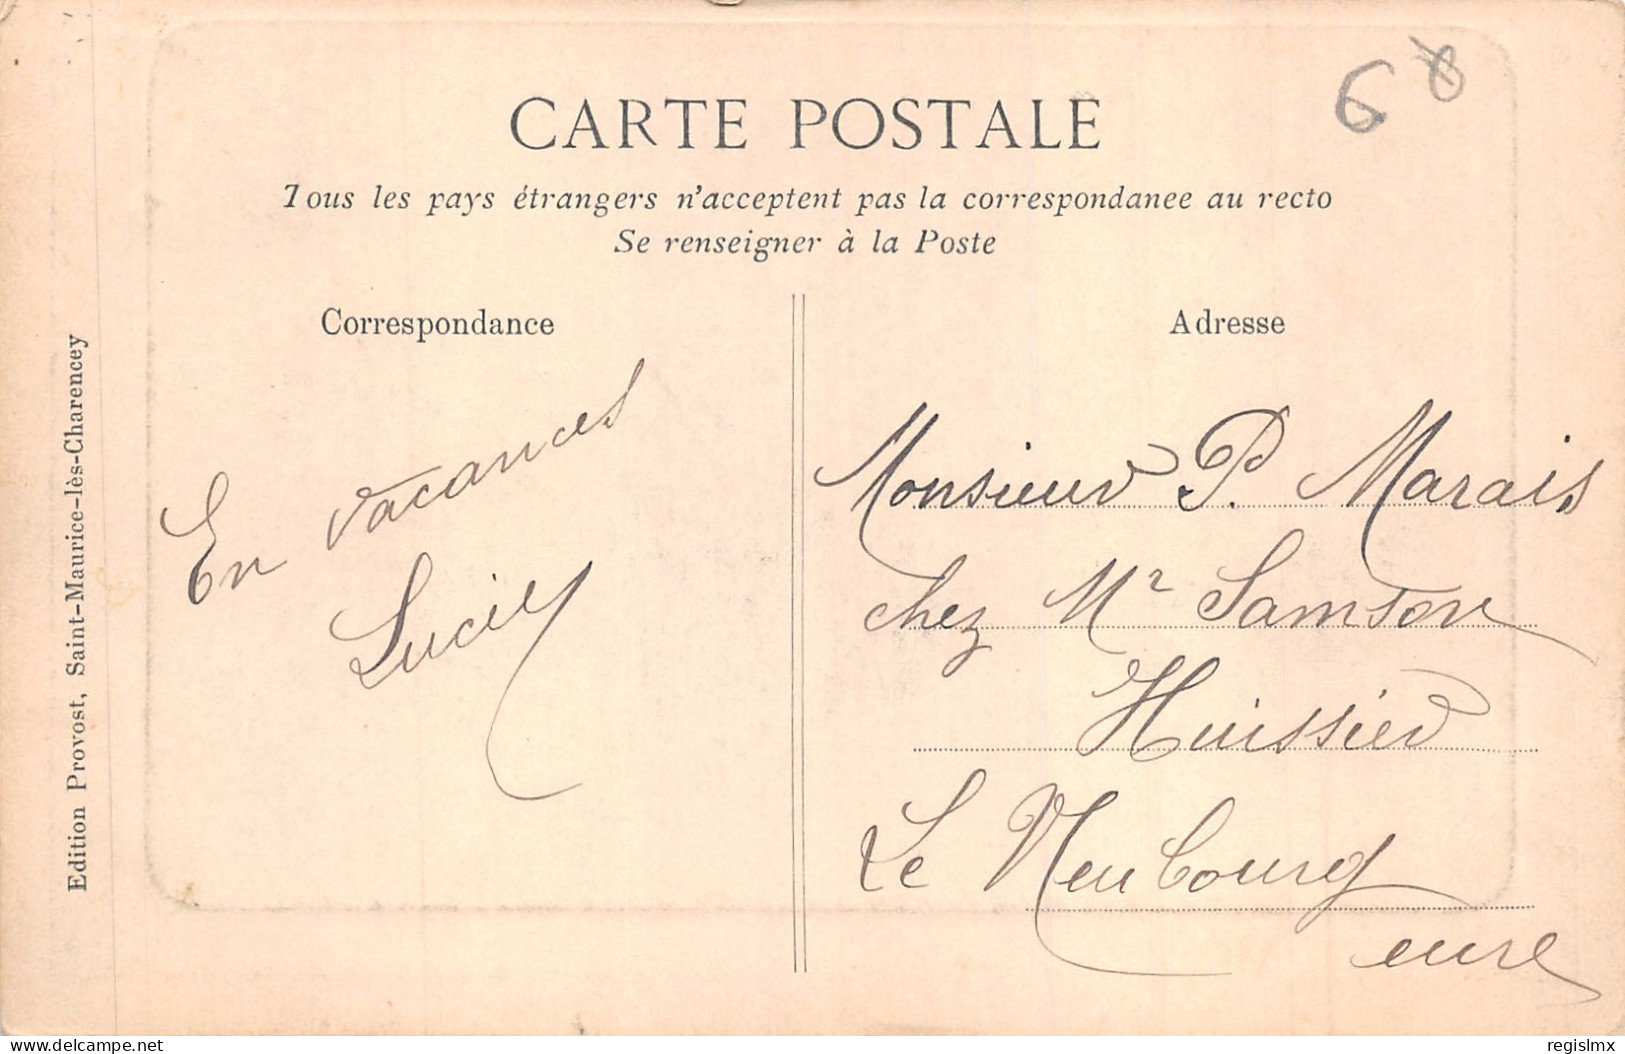 68
CARTE POSTALE
Tous les pays étrangers n'acceptent pas la correspondanee au recto
Se renseigner à la Poste
Correspondance
En vacances
Lucie
Adresse
Monsieur P. Marais
chez Mr Samson
Huissier
Le Neubourg
eure
Edition Provost, Saint-Maurice-lès-Charencey
delcampe.net
regislmx